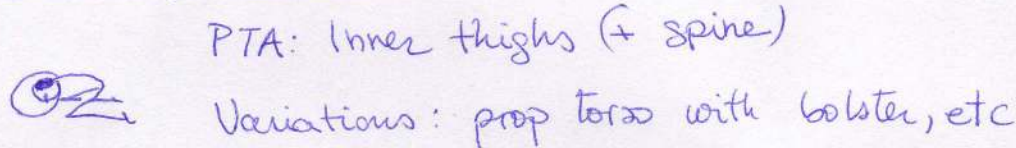 PTA: Inner thighs (+ spine)
Variations: prop torso with bolster, etc